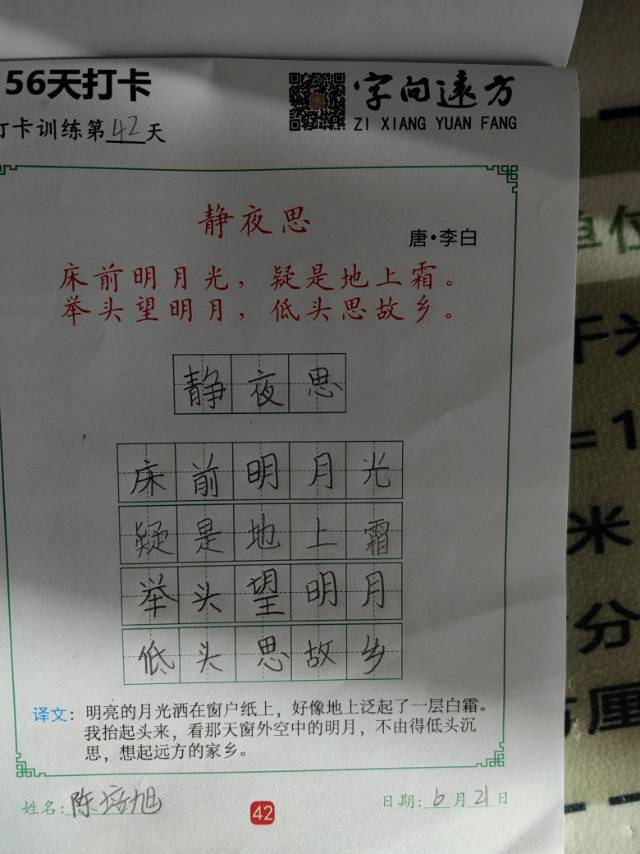 56天打卡
字向远方
打卡训练第42天
ZI XIANG YUAN FANG
静夜思
唐·李白
床前明月光，疑是地上霜。
举头望明月，低头思故乡。
静夜思
床前明月光
疑是地上霜
举头望明月
低头思故乡
译文：明亮的月光洒在窗户纸上，好像地上泛起了一层白霜。
我抬起头来，看那天窗外空中的明月，不由得低头沉
思，想起远方的家乡。
姓名：陈培旭
42
日期：6月21日
单位
千米
=1
米
分
厘